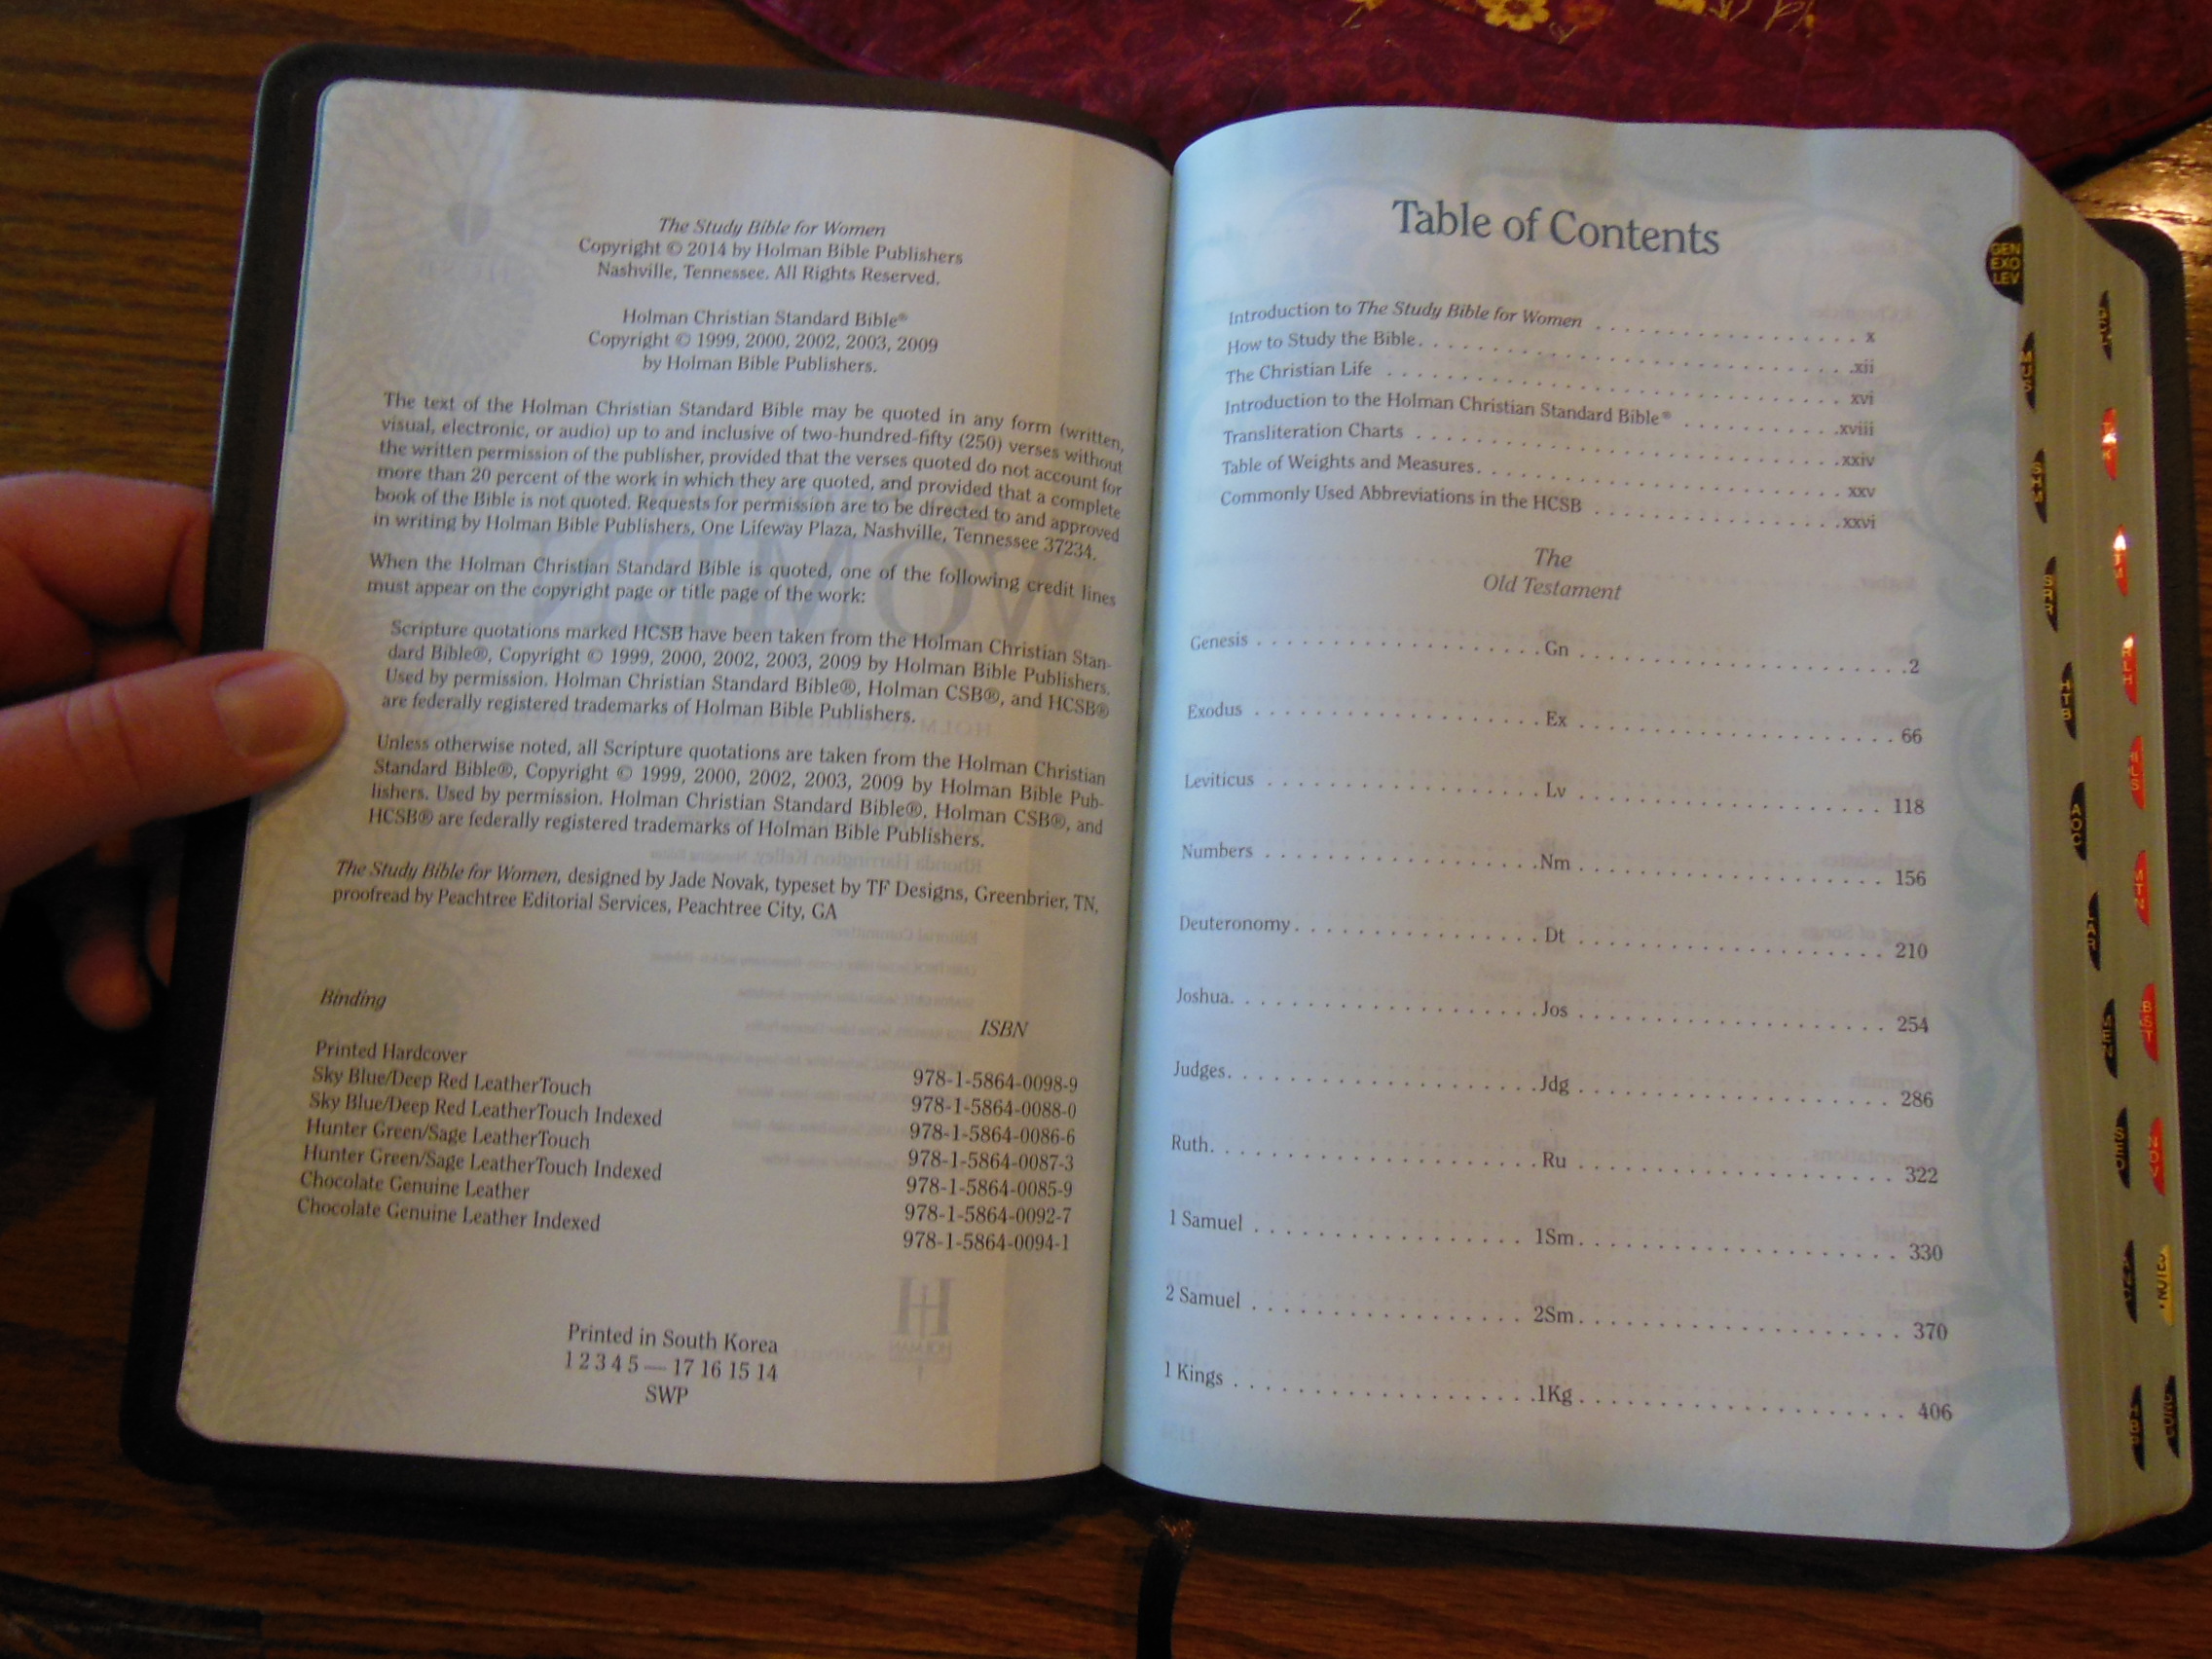 The Study Bible for Women
Copyright © 2014 by Holman Bible Publishers
Nashville, Tennessee. All Rights Reserved.
Holman Christian Standard Bible®
Copyright © 1999, 2000, 2002, 2003, 2009
by Holman Bible Publishers.
The text of the Holman Christian Standard Bible may be quoted in any form (written,
visual, electronic, or audio) up to and inclusive of two-hundred-fifty (250) verses without
the written permission of the publisher, provided that the verses quoted do not account for
more than 20 percent of the work in which they are quoted, and provided that a complete
book of the Bible is not quoted. Requests for permission are to be directed to and approved
in writing by Holman Bible Publishers, One Lifeway Plaza, Nashville, Tennessee 37234.
When the Holman Christian Standard Bible is quoted, one of the following credit lines
must appear on the copyright page or title page of the work:
Scripture quotations marked HCSB have been taken from the Holman Christian Stan-
dard Bible®, Copyright © 1999, 2000, 2002, 2003, 2009 by Holman Bible Publishers.
Used by permission. Holman Christian Standard Bible®, Holman CSB®, and HCSB®
are federally registered trademarks of Holman Bible Publishers.
Unless otherwise noted, all Scripture quotations are taken from the Holman Christian
Standard Bible®, Copyright © 1999, 2000, 2002, 2003, 2009 by Holman Bible Pub-
lishers. Used by permission. Holman Christian Standard Bible®, Holman CSB®, and
HCSB® are federally registered trademarks of Holman Bible Publishers.
The Study Bible for Women, designed by Jade Novak, typeset by TF Designs, Greenbrier, TN,
proofread by Peachtree Editorial Services, Peachtree City, GA
Binding ISBN
Printed Hardcover 978-1-5864-0098-9
Sky Blue/Deep Red LeatherTouch 978-1-5864-0088-0
Sky Blue/Deep Red LeatherTouch Indexed 978-1-5864-0086-6
Hunter Green/Sage LeatherTouch 978-1-5864-0087-3
Hunter Green/Sage LeatherTouch Indexed 978-1-5864-0085-9
Chocolate Genuine Leather 978-1-5864-0092-7
Chocolate Genuine Leather Indexed 978-1-5864-0094-1
Printed in South Korea
1 2 3 4 5 — 17 16 15 14
SWP
Table of Contents
Introduction to The Study Bible for Women . . . . . x
How to Study the Bible. . . . . xii
The Christian Life . . . . . xvi
Introduction to the Holman Christian Standard Bible® . . . . . xviii
Transliteration Charts . . . . . xxiv
Table of Weights and Measures. . . . . xxv
Commonly Used Abbreviations in the HCSB . . . . . xxvi
The
Old Testament
Genesis . . . . . Gn . . . . . 2
Exodus . . . . . Ex . . . . . 66
Leviticus . . . . . Lv . . . . . 118
Numbers . . . . . Nm . . . . . 156
Deuteronomy. . . . . Dt . . . . . 210
Joshua. . . . . Jos . . . . . 254
Judges. . . . . Jdg . . . . . 286
Ruth. . . . . Ru . . . . . 322
1 Samuel . . . . . 1Sm. . . . . 330
2 Samuel . . . . . 2Sm. . . . . 370
1 Kings . . . . . 1Kg . . . . . 406
GEN
EXO
LEV
NOTES